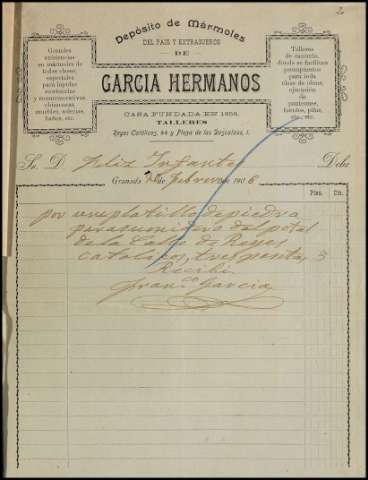 2
Depósito de Mármoles
DEL PAIS Y EXTRANJEROS
DE
GARCIA HERMANOS
CASA FUNDADA EN 1858.
TALLERES
Reyes Católicos, 44 y Placa de las Descalzas, 1.
Grandes
existencias
en mármoles de
todas clases,
especiales
para lápidas
sepulcrales
y conmemorativas,
chimeneas,
muebles, solerías,
baños, etc.
Talleres
de cantería,
donde se facilitan
presupuestos
para toda
clase de obras,
ejecución
de
panteones,
fuentes, pilas,
etc., etc.
Sr. D. Feliz Infantes Debe
Granada de Febrero 1906
Ptas. Cts.
por un platillo de piedra
para sumidero del
de la Calle de Reyes
catolicos, tres pesetas 3
Recibi
Franco Garcia